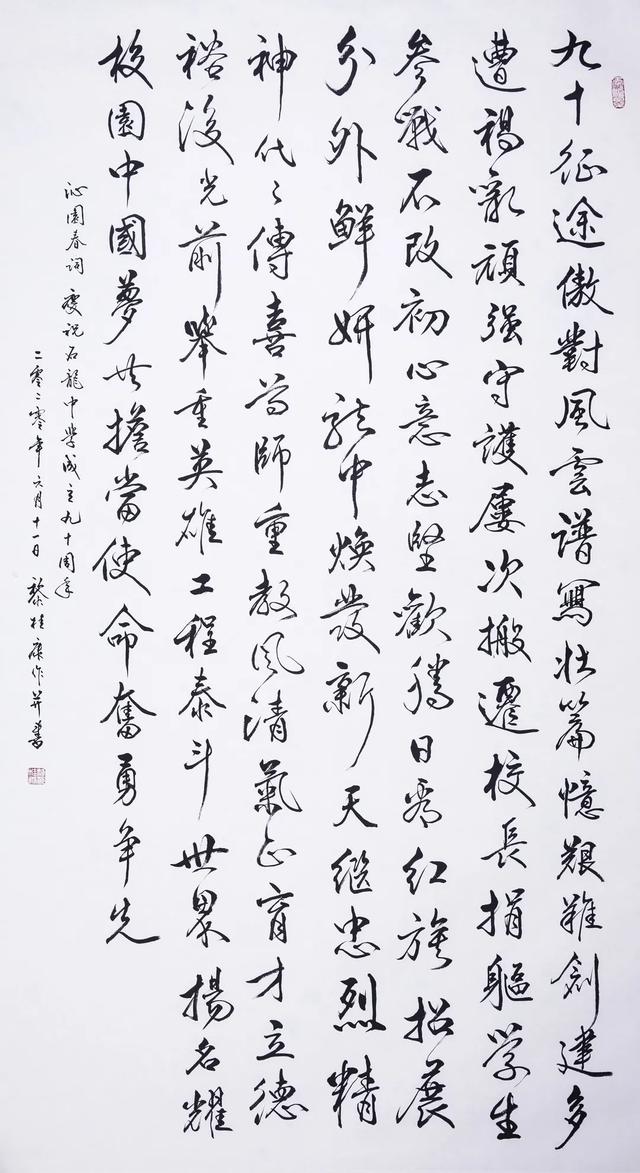 九十征途傲對風雲譜寫壮篇憶艱難創建多
遭禍亂頑强守護屢次搬遷校長捐軀学生
参戰不改初心意志堅歡騰日看红旗招展
分外鮮妍龍中焕發新天繼忠烈精
神代〻傳喜尊師重教风清氣正育才立德
裕後光前舉重英雄工程泰斗世界揚名耀
校園中國夢共擔當使命奮勇争先
沁園春詞 慶祝石龍中学成立九十周年
二零二零年六月十一日 黎桂康作并書